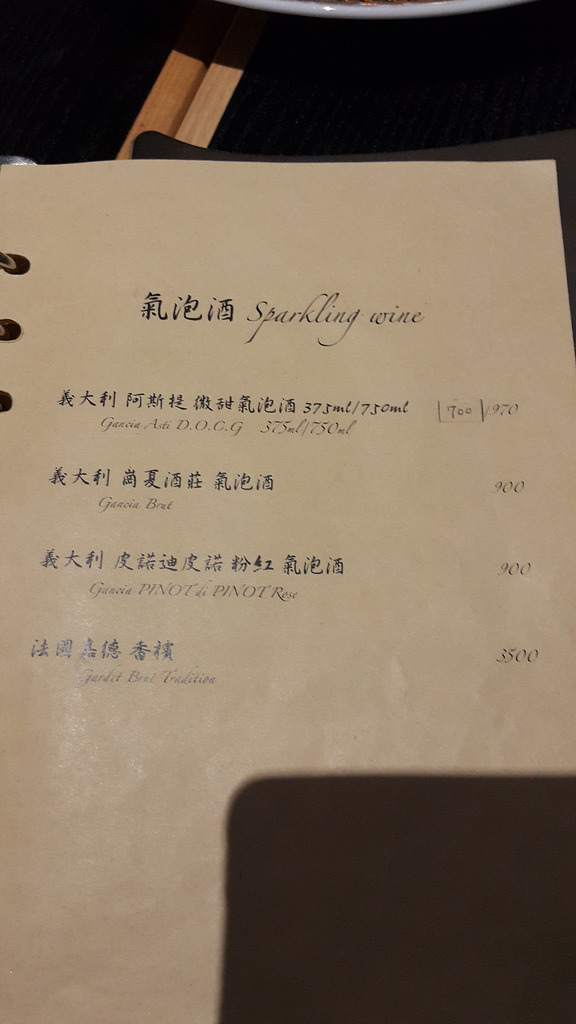 氣泡酒 Sparkling wine
義大利 阿斯提 微甜氣泡酒 375ml/750ml 700/970
Gancia Asti D.O.C.G 375ml/750ml
義大利 崗夏酒莊 氣泡酒 900
Gancia Brut
義大利 皮諾迪皮諾 粉紅 氣泡酒 900
Gancia PINOT di PINOT Rose
法國嘉德 香檳 3500
Gardet Brut Tradition